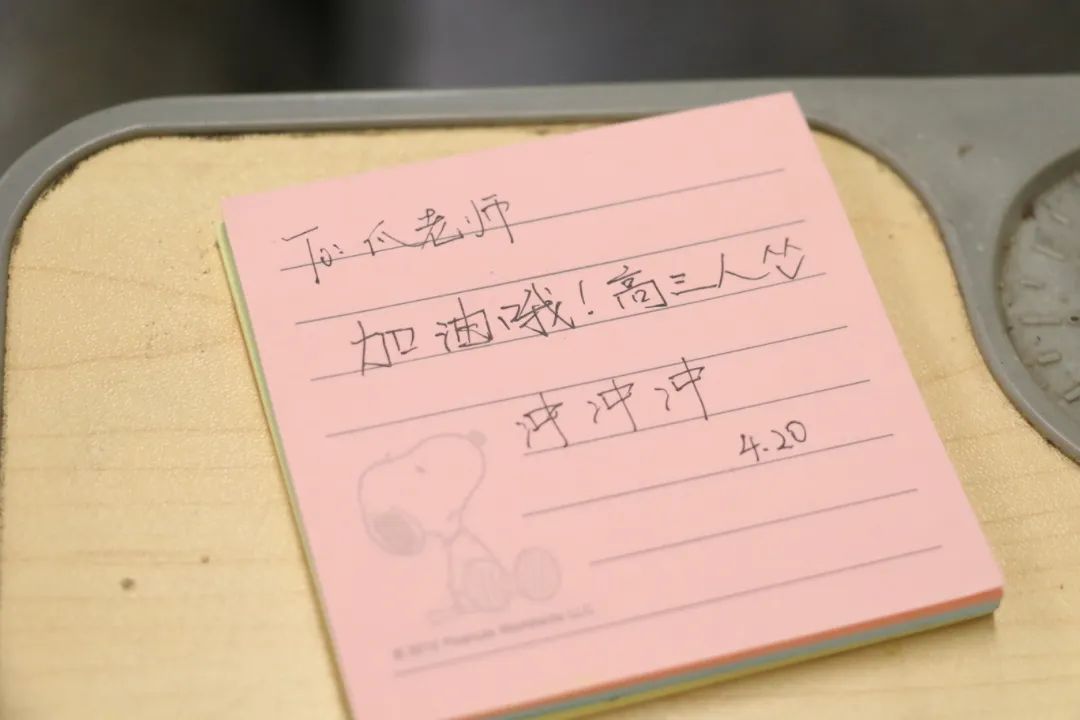 To: 瓜老师
加油哦！高三人^^
冲冲冲
4.20
© 2012 Peanuts Worldwide LLC